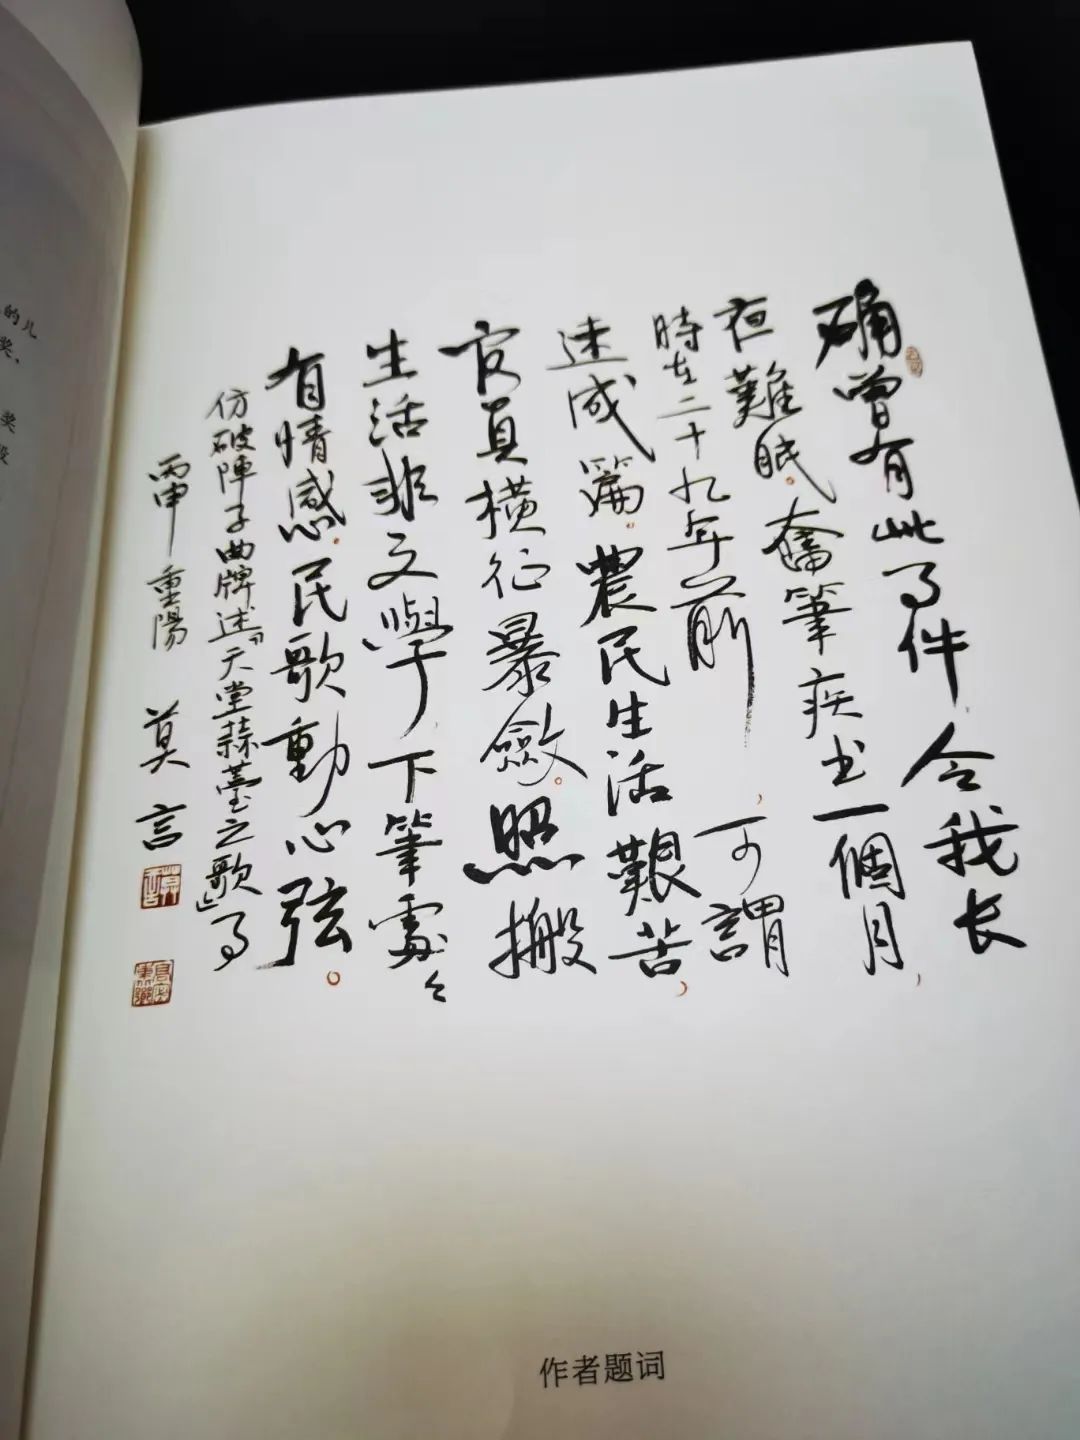 的儿
奖、
奖
确曾有此事件,令我长
夜難眠。奮筆疾书一個月,
時在二十九年前,可謂
速成篇。農民生活艱苦,
官員横征暴斂。照搬
生活非文學,下筆處々
有情感。民歌動心弦。
仿破陣子曲牌述『天堂蒜薹之歌』事
丙申重陽 莫言
莫言
作者题词